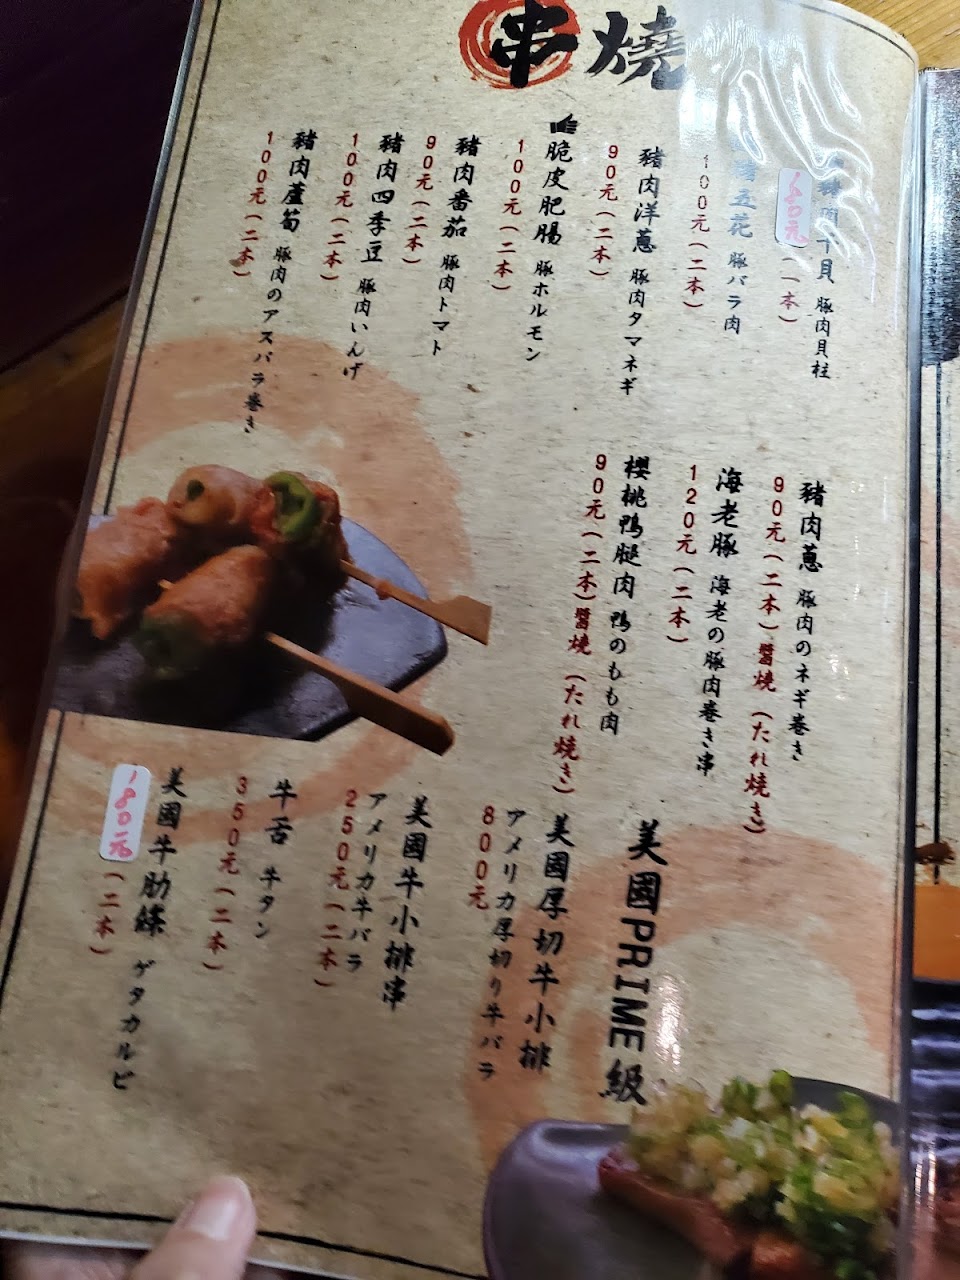 串燒
干貝 豚肉貝柱
180元
(一本)
五花 豚バラ肉
100元(二本)
豬肉洋蔥 豚肉タマネギ
90元(二本)
脆皮肥腸 豚ホルモン
100元(二本)
豬肉番茄 豚肉トマト
90元(二本)
豬肉四季豆 豚肉いんげ
100元(二本)
豬肉蘆筍 豚肉のアスパラ巻き
100元(二本)
豬肉蔥 豚肉のネギ巻き
90元(二本)醬燒(たれ焼き)
海老豚 海老の豚肉巻き串
120元(二本)
櫻桃鴨腿肉 鴨のもも肉
90元(二本)醬燒(たれ焼き)
美國PRIME級
美國厚切牛小排
アメリカ厚切り牛バラ
800元
美國牛小排串
アメリカ牛バラ
250元(二本)
牛舌 牛タン
350元(二本)
美國牛肋條 ゲタカルビ
180元
(二本)